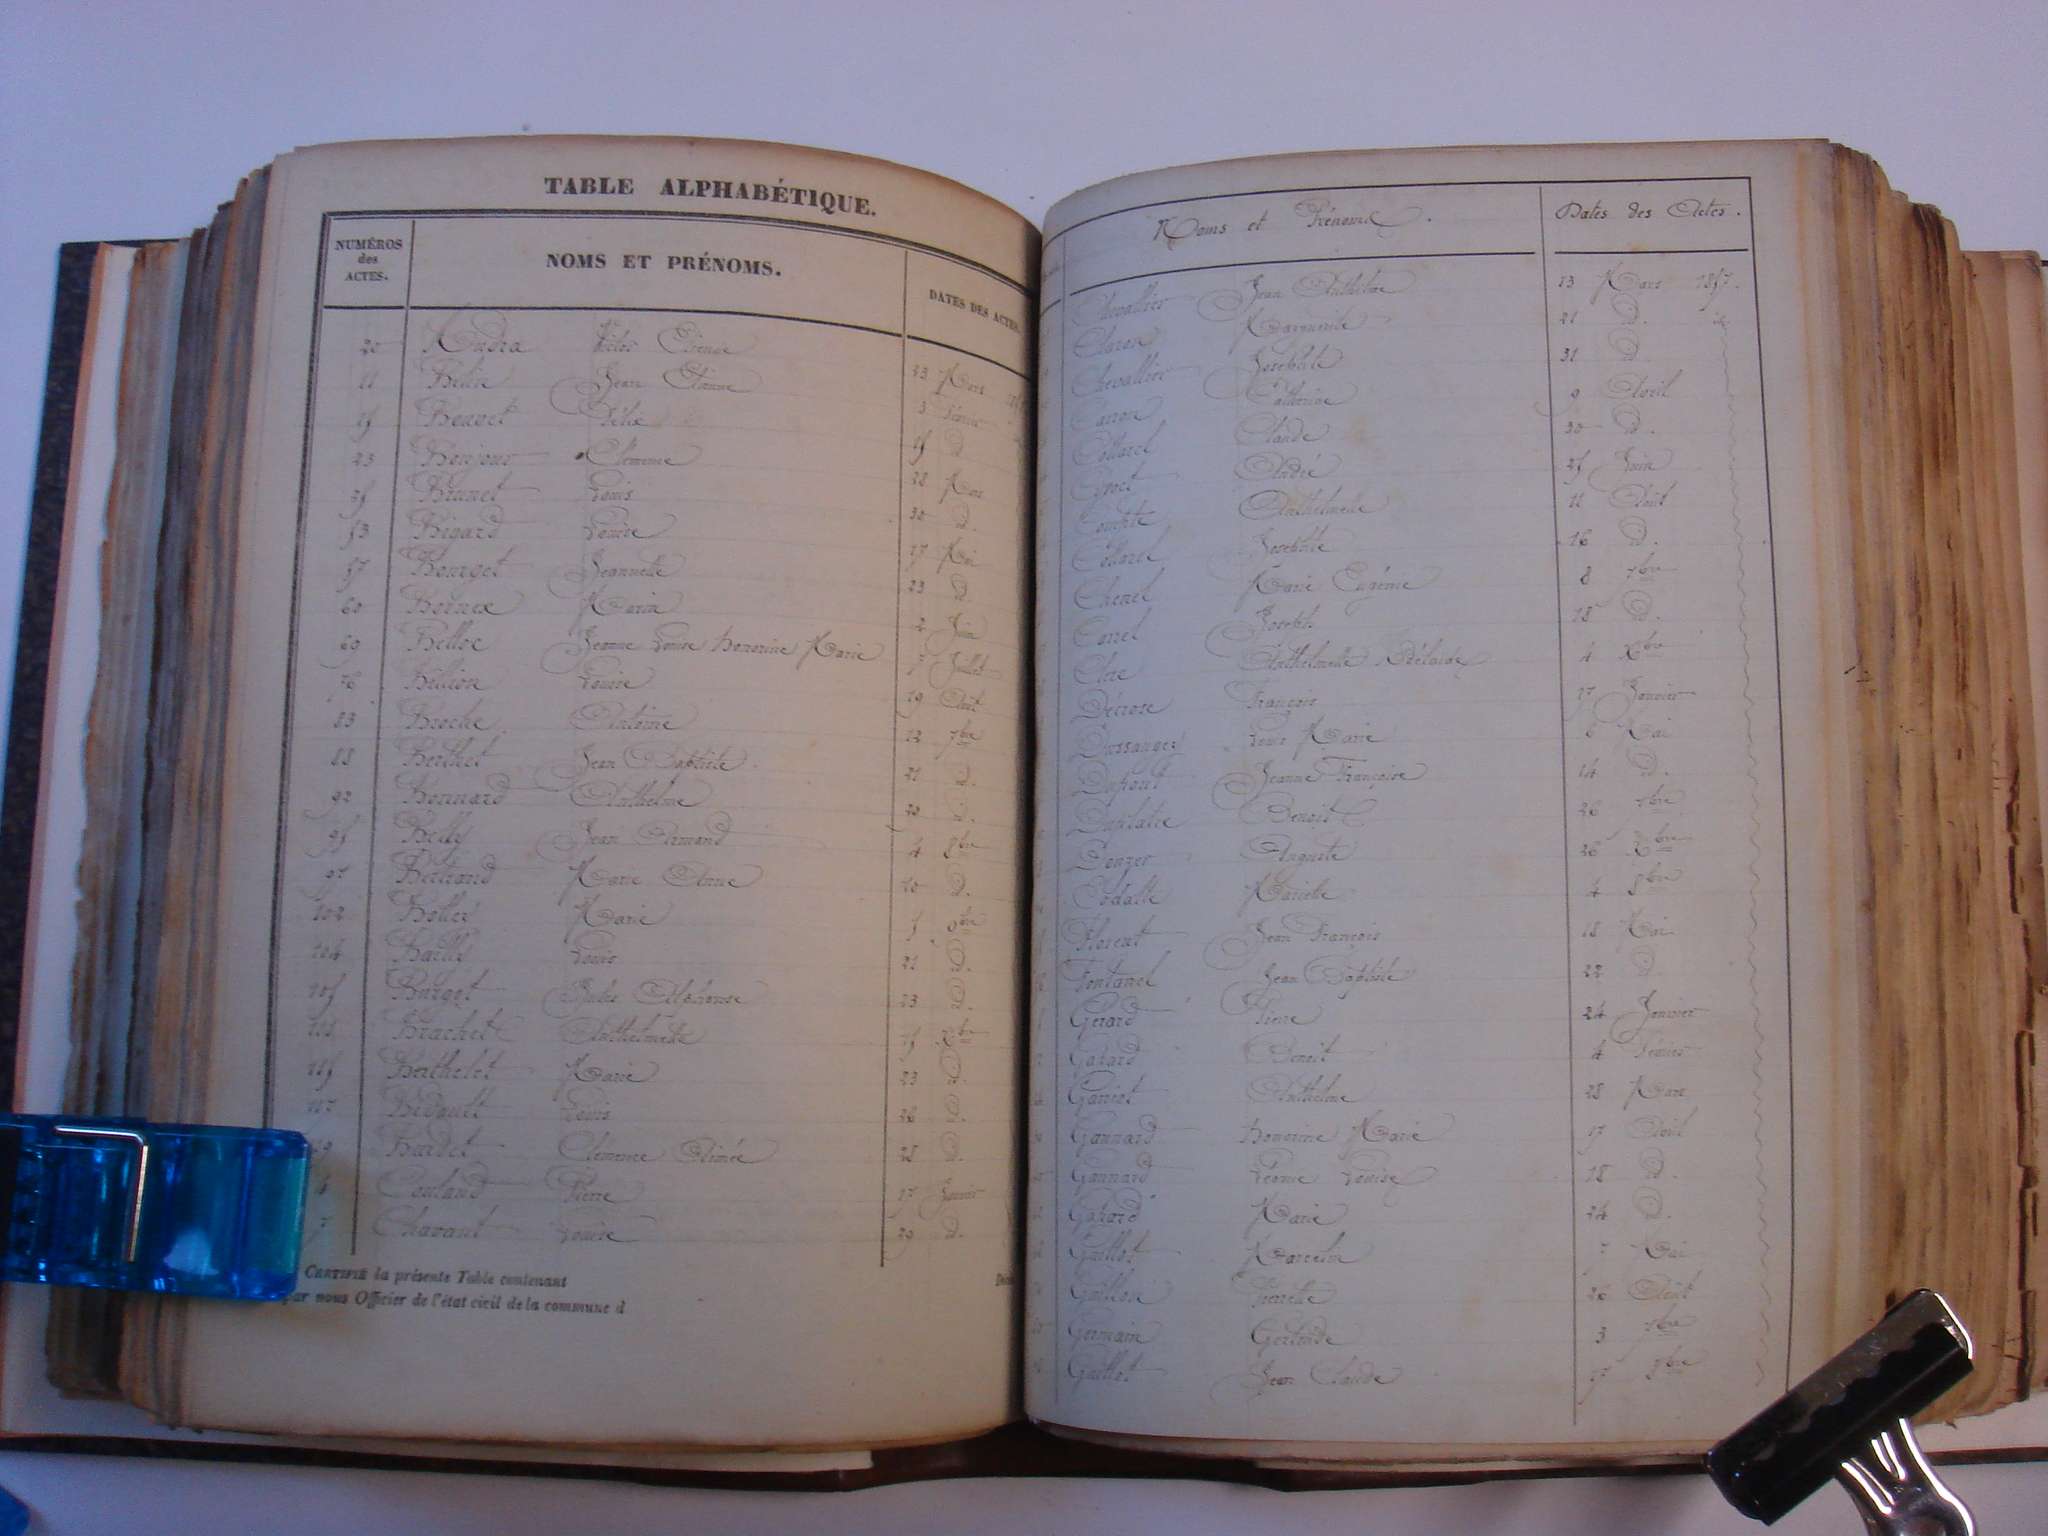 TABLE ALPHABÉTIQUE.
NUMÉROS des ACTES. NOMS ET PRÉNOMS. DATES DES ACTES.
20 Andra Victor Etienne 23 Mars
11 Jean Etienne 3 Février
15 Bonnet Félix 15 d.
23 Bonjour Clémence 28 Mars
25 Brunet Louis 30 d.
53 Bigard Louise 17 Mai
57 Bourget Jeannette 23 d.
60 Maria 2 Juin
69 Belloc Jeanne Louise honorine Marie 7 Juillet
76 Billion Louise 19 Août
83 Broche Antoine 12 7bre
88 Berthet Jean Baptiste 21 d.
92 Bonnard Anthelme 29 d.
95 Belly Jean Armand 4 8bre
97 Bertrand Marie Anne 10 d.
102 Marie 5 9bre
104 Bailly Louis 21 d.
105 Burget Jules Alphonse 23 d.
Brachet Anthelmette 15 Xbre
115 Berthelet Marie 23 d.
117 Bidault Louis 26 d.
Bardet Clémence Aimée 28 d.
Coutand Pierre 17 Janvier
7 Chavant Louise 29 d.
CERTIFIÉ la présente Table contenant
par nous Officier de l'état civil de la commune d
Noms et Prénoms. Dates des Actes.
Chevallier Jean Anthelme 13 Mars 1857.
Claron Marguerite 21 d.
Chevallier Josephte 31 d.
Carron Catherine 9 Avril
Collard Claude 30 d.
Croct André 25 Juin
Anthelmette 11 Août
Collard Josephte 16 d.
Chenel Marie Eugénie 8 7bre
Correl Joseph 18 d.
Clere Anthelmette Adélaïde 4 Xbre
Décrose François 17 Janvier
Dussanget Louis Marie 6 Mai
Dupont Jeanne Françoise 14 d.
Duplatre Benoit 26 7bre
Donzer Auguste 26 Xbre
Mariette 4 8bre
Florent Jean François 18 Mai
Fontanel Jean Baptiste 22 d.
Gérard Pierre 24 Janvier
Gabard Benoit 4 Février
Ganiet Anthelme 28 Mars
Gannard honorine Marie 17 Avril
Gannard Léonie Louise 18 d.
Gabard Marie 24 d.
Guillot Marcelin 7 Mai
Guillon Pierrette 20 Août
Germain Gertrude 3 7bre
Guillot Jean Claude 17 8bre